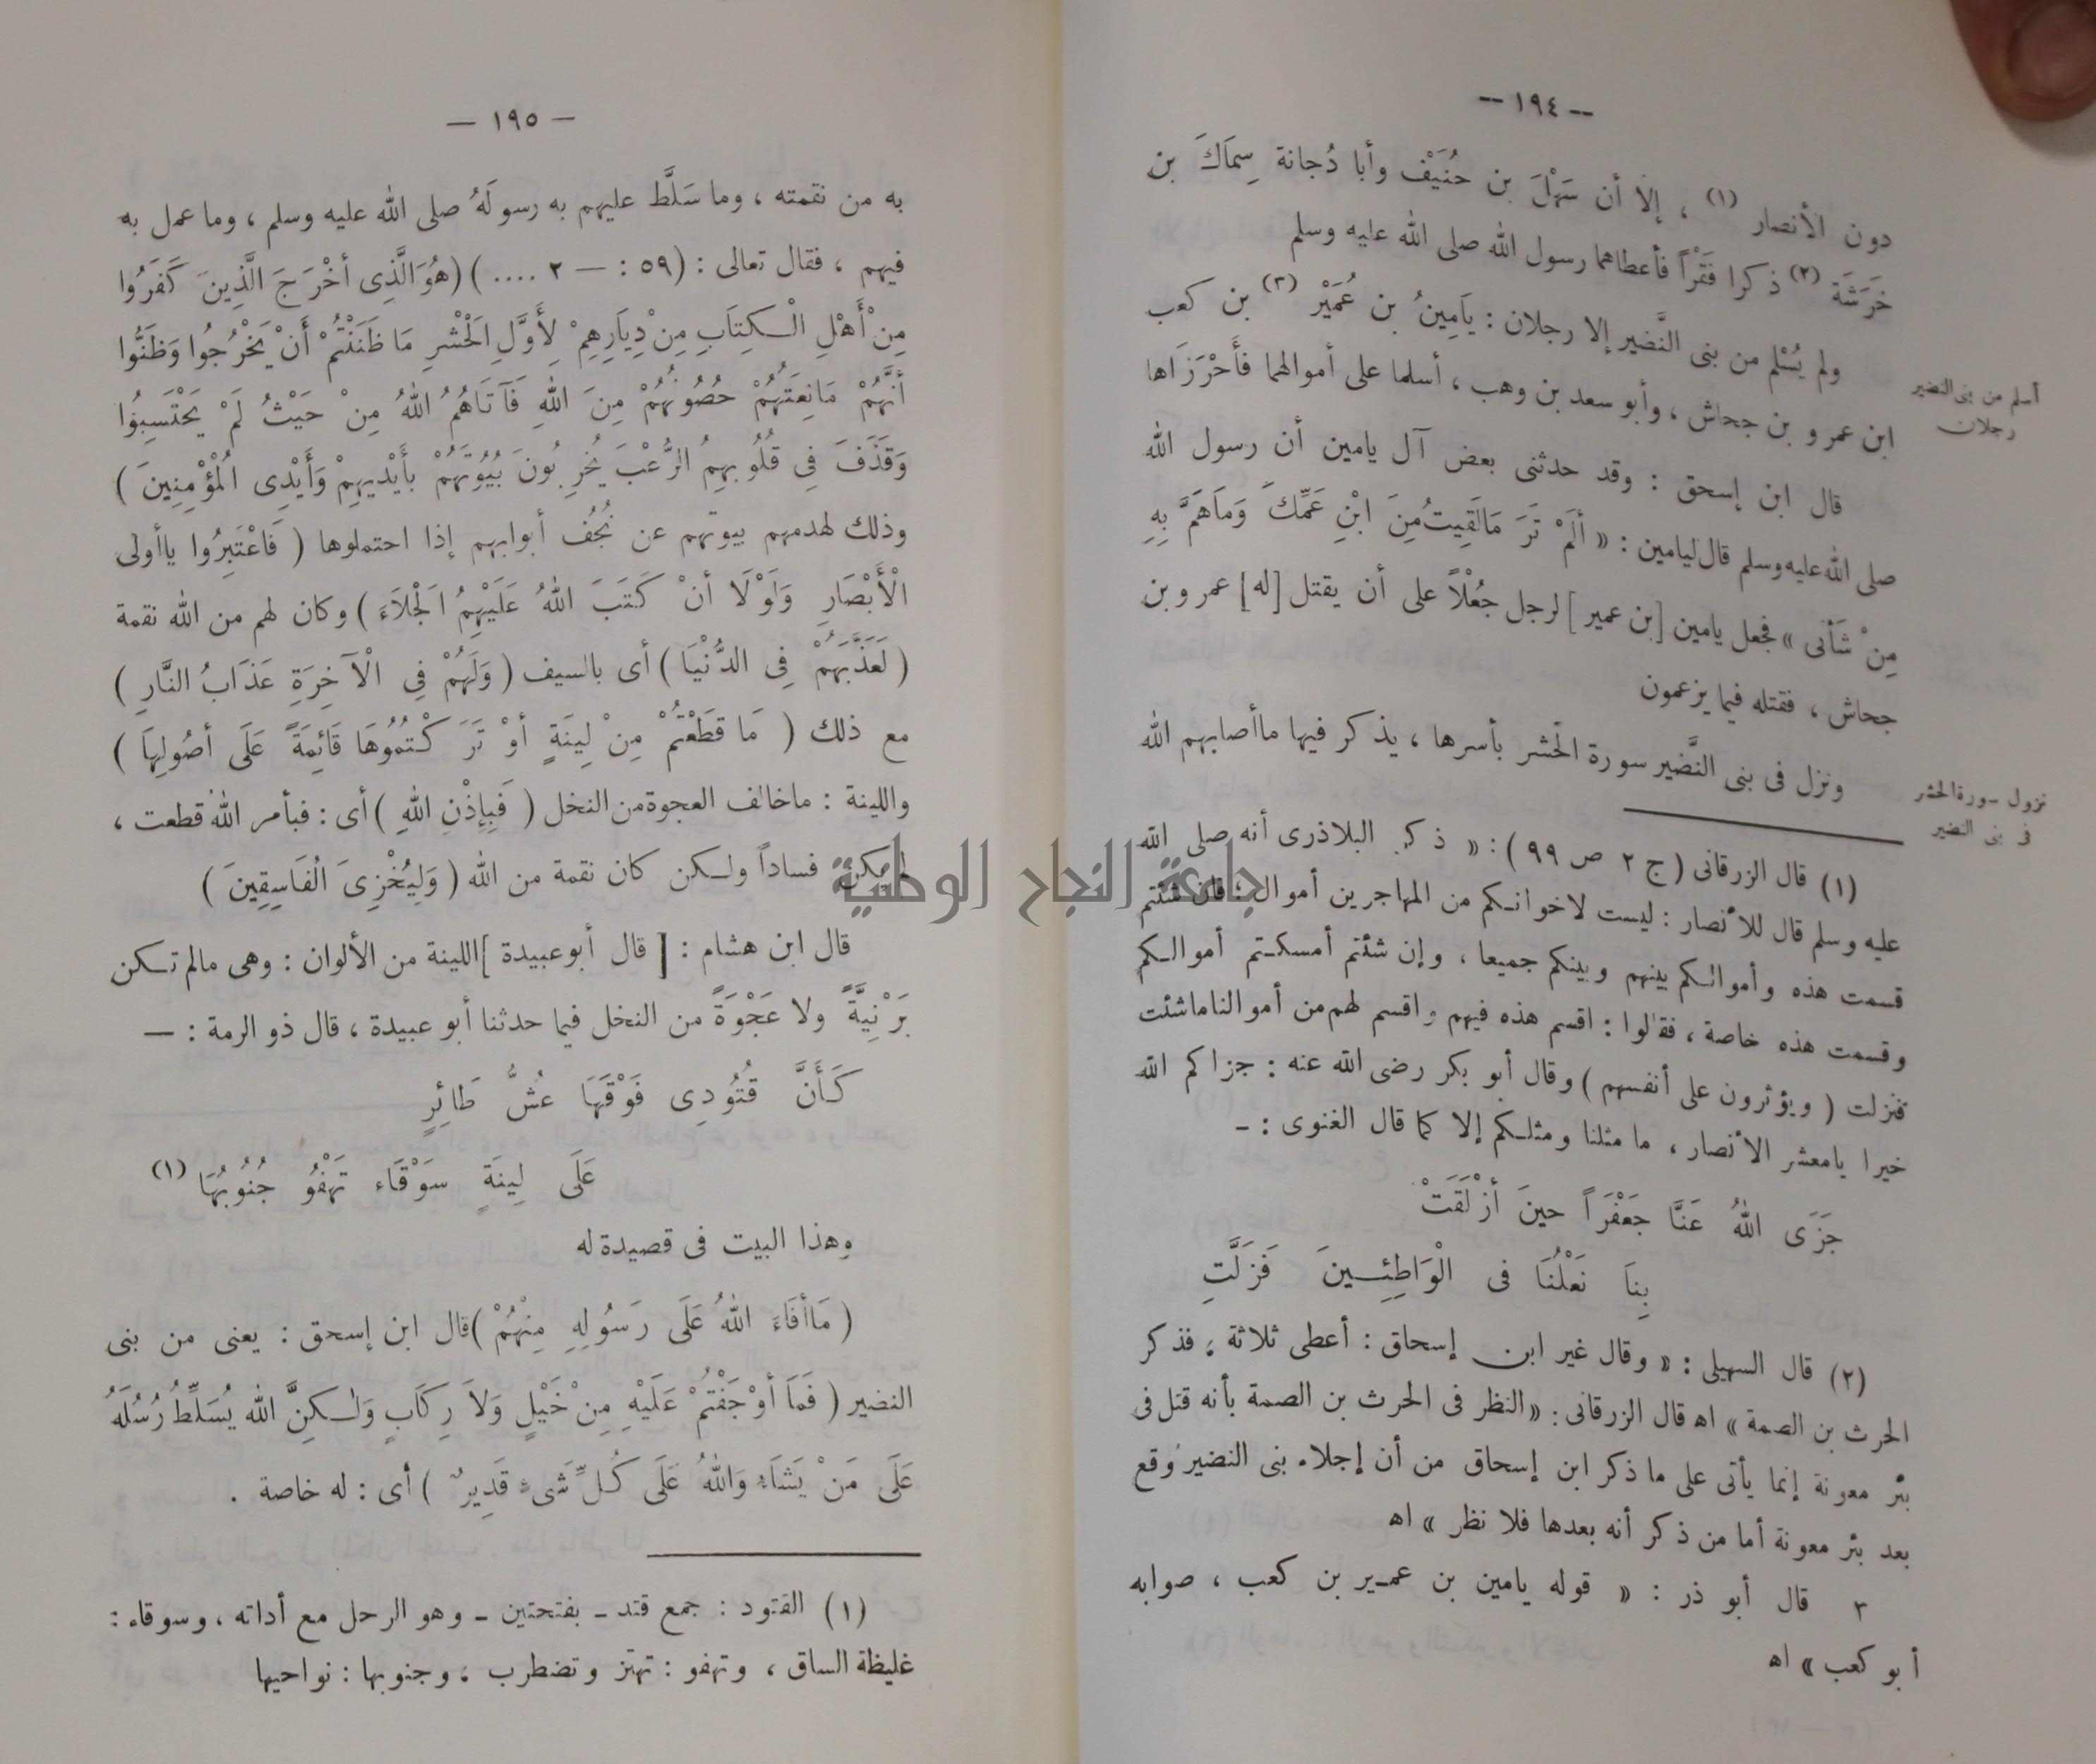 -- ١٩٤ --
دون الأنصار (١) ، إلا أن سَهْلَ بن حُنَيْف وأبا دُجانة سِمَاكَ بن
خَرَشَة (٢) ذكرا فَقْراً فأعطاهما رسول الله صلى الله عليه وسلم
ولم يُسْلم من بنى النَّضير إلا رجلان : يَامِينُ بن عُمَيْر (٣) بن كعب
ابن عمرو بن جحاش ، وأبو سعد بن وهب ، أسلما على أموالهما فأَحْرَزَاها
أسلم من بنى النضير
رجلان
قال ابن إسحق : وقد حدثنى بعض آل يامين أن رسول الله
صلى الله عليه وسلم قال ليامين : « أَلَمْ تَرَ مَا لَقِيتُ مِنَ ابْنِ عَمِّكَ وَمَا هَمَّ بِهِ
مِنْ شَأْنى » فجعل يامين [بن عمير] لرجل جُعْلاً على أن يقتل [له] عمرو بن
جحاش ، فقتله فيما يزعمون
ونزل فى بنى النَّضير سورة الحشر بأسرها ، يذكر فيها ما أصابهم الله
نزول سورة الحشر
فى بنى النضير
(١) قال الزرقانى (ج ٢ ص ٩٩) : « ذكر البلاذرى أنه صلى الله
عليه وسلم قال للأنصار : ليست لاخوانكم من المهاجرين أموال ; فان شئتم
قسمت هذه وأموالكم بينهم وبينكم جميعا ، وإن شئتم أمسكتم أموالكم
وقسمت هذه خاصة ، فقالوا : اقسم هذه فيهم واقسم لهم من أموالنا ماشئت
فنزلت ( ويؤثرون على أنفسهم ) وقال أبو بكر رضى الله عنه : جزاكم الله
خيرا يامعشر الأنصار ، ما مثلنا ومثلكم إلا كما قال الغنوى : -
جَزَى اللهُ عَنَّا جَعْفَراً حينَ أَزْلَقَتْ
بِنَا نَعْلُنَا فى الْوَاطِئِينَ فَزَلَّتِ
(٢) قال السهيلى : « وقال غير ابن إسحاق : أعطى ثلاثة ، فذكر
الحرث بن الصمة » اه قال الزرقانى : «النظر فى الحرث بن الصمة بأنه قتل فى
بئر معونة إنما يأتى على ما ذكر ابن إسحاق من أن إجلاء بنى النضير وقع
بعد بئر معونة أما من ذكر أنه بعدها فلا نظر » اه
٣ قال أبو ذر : « قوله يامين بن عمير بن كعب ، صوابه
أبو كعب » اه
— ١٩٥ —
به من نقمته ، وما سَلَّط عليهم به رسولَهُ صلى الله عليه وسلم ، وما عمل به
فيهم ، فقال تعالى : (٥٩ : — ٢ ....) (هُوَ الَّذِى أَخْرَجَ الَّذِينَ كَفَرُوا
مِنْ أَهْلِ الْكِتَابِ مِنْ دِيَارِهِمْ لِأَوَّلِ الْحَشْرِ مَا ظَنَنْتُمْ أَنْ يَخْرُجُوا وَظَنُّوا
أَنَّهُمْ مَانِعَتُهُمْ حُصُونُهُمْ مِنَ اللهِ فَآتَاهُمُ اللهُ مِنْ حَيْثُ لَمْ يَحْتَسِبُوا
وَقَذَفَ فِى قُلُوبِهِمُ الرُّعْبَ يُخْرِبُونَ بُيُوتَهُمْ بِأَيْدِيهِمْ وَأَيْدِى الْمُؤْمِنِينَ )
وذلك لهدمهم بيوتهم عن نُجُف أبوابهم إذا احتملوها ( فَاعْتَبِرُوا ياأُولى
الْأَبْصَارِ وَلَوْلَا أَنْ كَتَبَ اللهُ عَلَيْهِمُ الْجَلاَءَ ) وكان لهم من الله نقمة
( لَعَذَّبَهُمْ فِى الدُّنْيَا ) أى بالسيف ( وَلَهُمْ فِى الْآخِرَةِ عَذَابُ النَّارِ )
مع ذلك ( مَا قَطَعْتُمْ مِنْ لِينَةٍ أَوْ تَرَكْتُمُوهَا قَائِمَةً عَلَى أُصُولِهَا )
واللينة : ماخالف العجوة من النخل ( فَبِإِذْنِ اللهِ ) أى : فبأمر الله قطعت ،
لم يكن فساداً ولكن كان نقمة من الله ( وَلِيُخْزِىَ الْفَاسِقِينَ )
قال ابن هشام : [ قال أبو عبيدة ] اللينة من الألوان : وهى مالم تكن
بَرْنِيَّةً ولا عَجْوَةً من النخل فيما حدثنا أبو عبيدة ، قال ذو الرمة : —
كَأَنَّ قُتُودِى فَوْقَهَا عُشُّ طَائِرٍ
عَلَى لِينَةٍ سَوْقَاء تَهْفُو جُنُوبُهَا (١)
وهذا البيت فى قصيدة له
( مَا أَفَاءَ اللهُ عَلَى رَسُولِهِ مِنْهُمْ ) قال ابن إسحق : يعنى من بنى
النضير ( فَمَا أَوْجَفْتُمْ عَلَيْهِ مِنْ خَيْلٍ وَلاَ رِكَابٍ وَلٰكِنَّ الله يُسَلِّطُ رُسُلَهُ
عَلَى مَنْ يَشَاءُ وَاللهُ عَلَى كُلِّ شَىْءٍ قَدِيرٌ ) أى : له خاصة .
(١) القتود : جمع قتد - بفتحتين - وهو الرحل مع أداته ، وسوقاء :
غليظة الساق ، وتهفو : تهتز وتضطرب ، وجنوبها : نواحيها
جامعة النجاح الوطنية